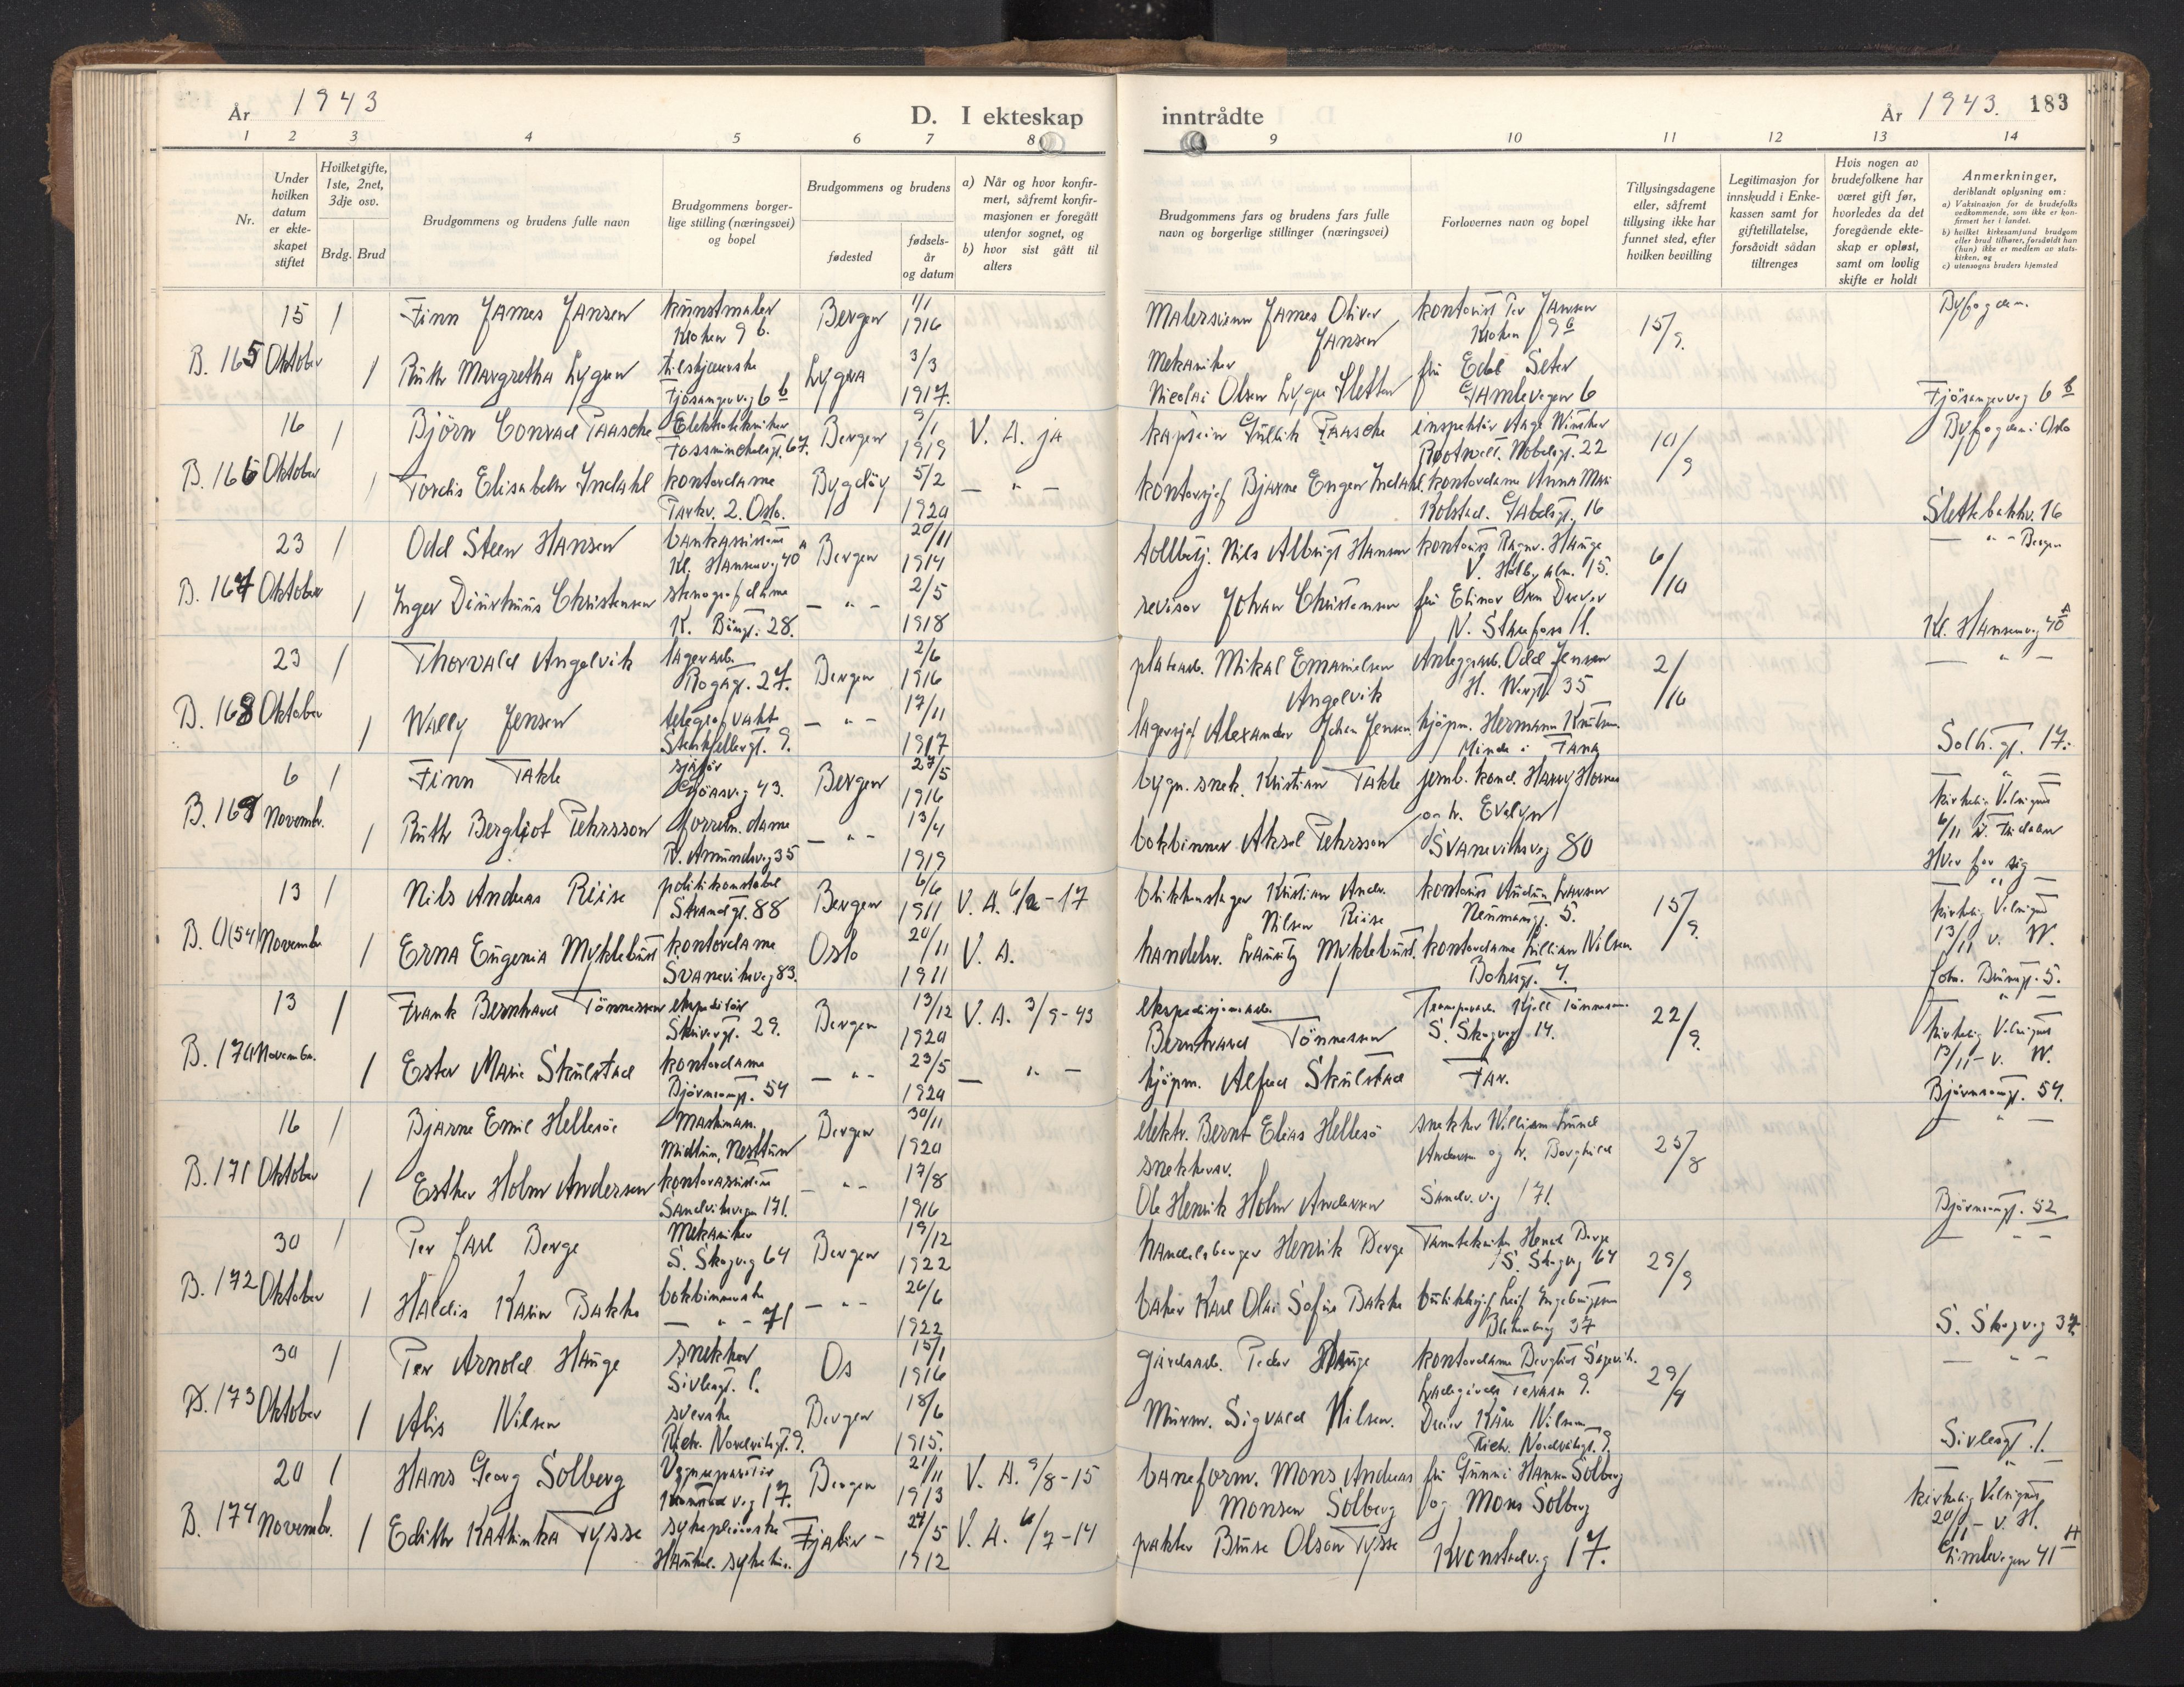 År 1943
D. I ekteskap
inntrådte
År 1943. 183
1 2 3 4 5 6 7 8
9 10 11 12 13 14
Nr.
Under hvilken datum er ekteskapet stiftet
Hvilket gifte, 1ste, 2net, 3dje osv.
Brdg. Brud
Brudgommens og brudens fulle navn
Brudgommens borgerlige stilling (næringsvei) og bopel
Brudgommens og brudens
fødested
fødselsår og datum
a) Når og hvor konfirmert, såfremt konfirmasjonen er foregått utenfor sognet, og
b) hvor sist gått til alters
Brudgommens fars og brudens fars fulle navn og borgerlige stillinger (næringsvei)
Forlovernes navn og bopel
Tillysingsdagene eller, såfremt tillysing ikke har funnet sted, efter hvilken bevilling
Legitimasjon for innskudd i Enkekassen samt for giftetillatelse, forsåvidt sådan tiltrenges
Hvis nogen av brudefolkene har været gift før, hvorledes da det foregående ekteskap er opløst, samt om lovlig skifte er holdt
Anmerkninger,
deriblandt oplysning om:
a) Vaksinasjon for de brudefolks vedkommende, som ikke er konfirmert her i landet.
b) hvilket kirkesamfund brudgom eller brud tilhører, forsåvidt han (hun) ikke er medlem av statskirken, og
c) utensogns bruders hjemsted
B. 165 15 Oktober
1 Finn James Jansen kunstmaler Kroken 9 b. Bergen 1/1 1916
Malersvenn James Oliver Jansen kontorist Per Jansen Kroken 9 b 15/9.
1 Ruth Margretha Lygren Fjøsangerveg 6 b Lygra 3/3 1917.
Mekaniker Nicolai Olsen fru Edel Seter Gamlevegen 6
Fjösangerveg 6 b
B. 166 16 Oktober
1 Björn Conrad Paasche 67. Bergen 9/1 1919 V. A. ja
kaptein Gullik Paasche inspektør Aage Nobelsgt. 22 10/9
Byfogden i Oslo
1 Tordis Elisabeth Indahl kontordame Parkv. 2. Oslo. Bygdöy 5/2 1920 — " —
kontorsjef Bjarne Engen Indahl. kontordame Anna Mari Kolstad. Gabelsgt. 16
Slettebakkv. 16
B. 167 23 Oktober
1 Odd Steen Hansen Kl. Hansensvg 40 A Bergen 20/11 1914
tollbetj. Nils Albrigt Hansen kontorist Ragnv. Hauge V. Holbyalm. 15. 6/10
— " — Bergen
1 Inger Duurhuus Christensen stenografdame 28. — " — 2/5 1918
revisor Johan Christensen fru Elinor
Kl. Hansensvg 40 A
B. 168 23 Oktober
1 Thorvald Angelvik lagerarb. 27. Bergen 2/6 1916
platearb. Mikal Emanuelsen Angelvik Anleggsarb. Odd Jensen 35 2/10
— " —
1 Wally Jensen telegrafvakt Stenkjellergt. 9. — " — 17/11 1917
lagersjef Alexander Johan Jensen. kjöpm. Hermann Knutsen. Minde i Fana
Solh.gt. 17.
B. 169 6 Novembr.
1 Finn Takle sjåfør 43. Bergen 27/5 1916
bygn. snek. Kristian Takle
— " —
1 Ruth Bergliot Pehrsson forretn. dame R. Amundsvg 35 — " — 13/4 1919
bokbinner Aksel Pehrsson og h. Evelyn Svanevikveg 80
kirkelig Velsignet 6/11
Hver for sig
B. (154) 13 Novembr
1 Nils Andreas Riise politikonstabel Strandgt. 88 Bergen 6/6 1911 V. A. -17
blikkenslager Kristian Andr. Nilsen Riise kontorist Audun Larsen Neumannsgt. 5. 15/9.
— " —
1 Erna Eugenia Myklebust kontordame Svanevikveg 83. Oslo 20/11 1911 V. A.
handelsr. Lauritz Myklebust. kontordame Lillian Nilsen.
kirkelig Velsignet 13/11 v. W.
Joh. Brunsgt. 5.
B. 170 13 Novembr.
1 Frank Bernhard Tönnessen ekspeditör Skivergt. 29. Bergen 13/12 1920 V. A. 3/9-43
Bernhard Tönnessen Kjell Tönnessen S. Skogveg 14. 22/9.
— " —
1 Ester Marie Skulstad kontordame Bjørnsonsgt. 54 — " — 23/5 1920 — " —
kjöpm. Alfred Skulstad Far.
kirkelig Velsignet 13/11 - v. W.
Bjørnsonsgt. 54.
B. 171 16 Oktober
1 Bjarne Emil Hellesöe Maskinass. Midtun, Nesttun Bergen 30/11 1920
elektr. Bernt Elias Hellesö snekker William Lund Andersen og h. Borghild 25/8
— " —
1 Esther Holm Andersen kontorassistent Sandviksvegen 171. — " — 17/8 1916
snekkersv. Ole Henrik Holm Andersen Sandv.veg 171.
Bjørnsonsgt. 52
B. 172 30 Oktober
1 Per Jarl Berge Mekaniker S. Skogveg 64 Bergen 19/12 1922
handelsborger Henrik Berge Tanntekniker Henrik Berge S. Skogveg 64 29/9
— " —
1 Haldis Karin Bakke bokbinnerske — " — 71 — " — 26/6 1922
baker Karl Olai Sofus Bakke butikksjef Leif Ingebrigtsen 37
S. Skogveg 37.
B. 173 30 Oktober
1 Per Arnold Hauge snekker Sivlesgt. 1. Os 15/1 1916
gårdsarb. Peder Hauge kontordame Bergliot Ladegårds Terasse 9. 29/9
— " —
1 Alis Nilsen Rich. Nordråksgt. 9. Bergen 18/6 1915.
Murm. Sigvald Nilsen. Dreier Kåre Nilsen Rich. Nordråksgt. 9.
Sivlesgt. 1.
B. 174 20 Novembr.
1 Hans Georg Solberg Kronstadveg 17. Bergen 21/11 1913 V. A. 9/8-15
baneform. Mons Andreas Monsen Solberg fru Gunni Hansen Solberg og Mons Solberg
— " —
1 Edith Kathinka Tysse sykepleierske Haukel. sykehus. Fjaler - 27/5 1912 V. A. 6/7-14
pakter Bruse Olson Tysse Kronstadveg 17.
kirkelig Velsignet 20/11 - v. H.
Gimlevegen 41 H